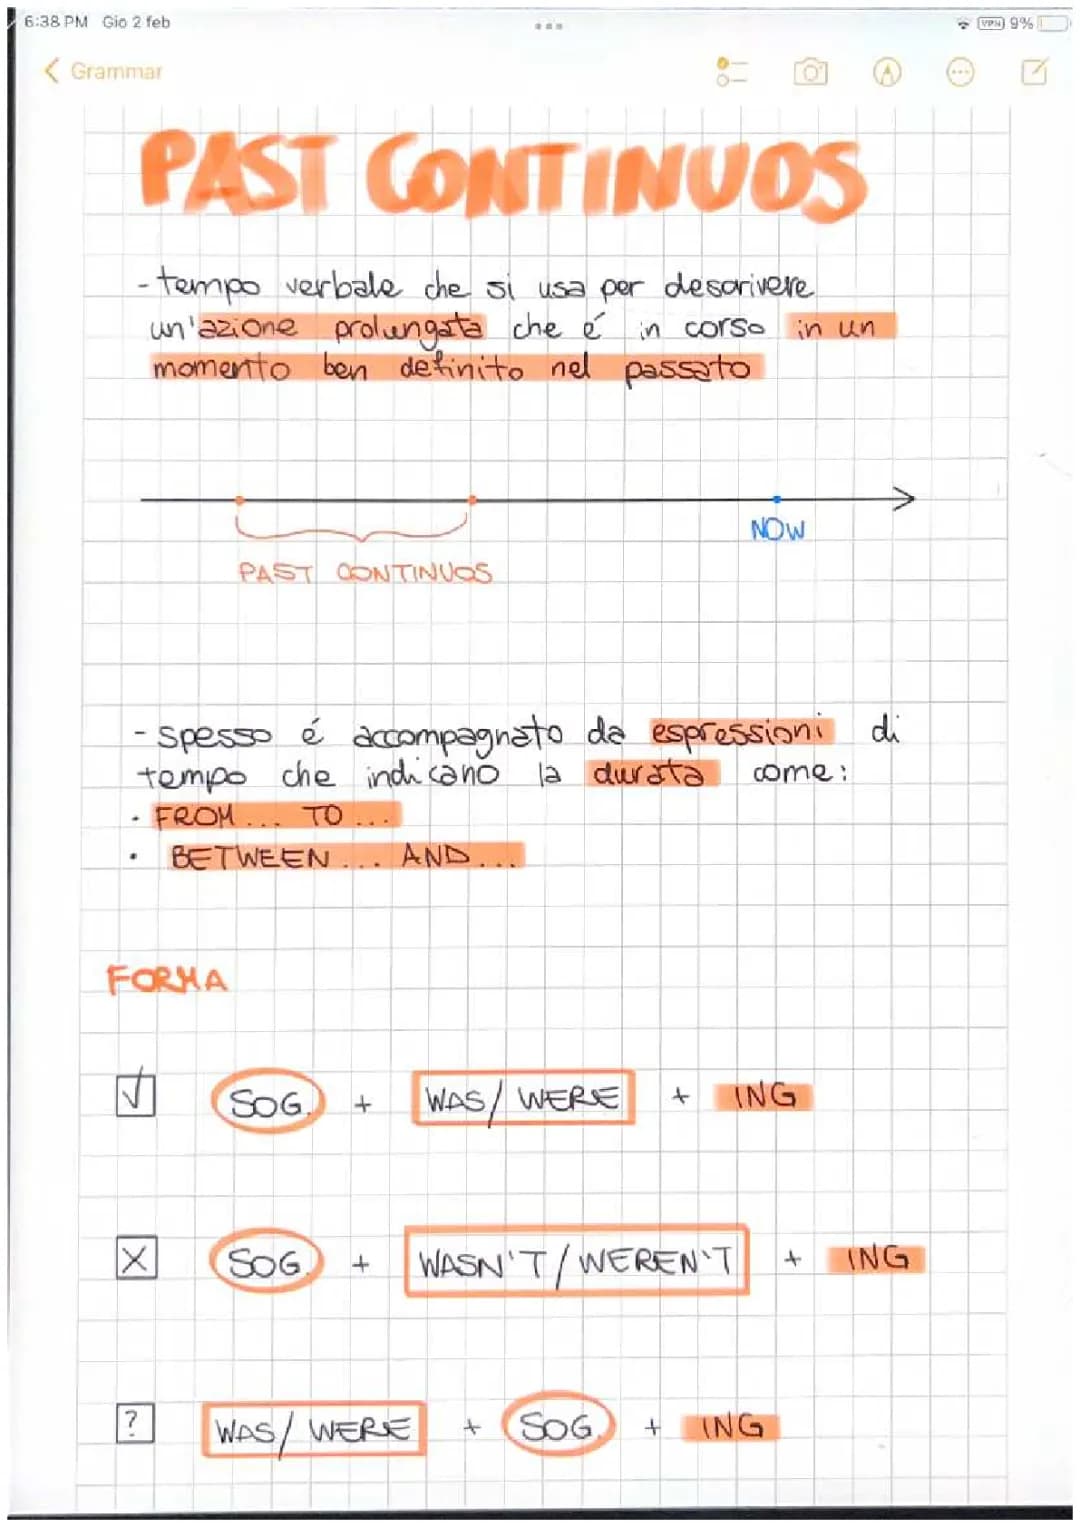 6:38 PM Gio 2 feb
VPN 9%
Grammar
PAST CONTINUOS
- tempo verbale che si usa per descrivere
un'azione prolungata che é in corso in un
momento ben definito nel passato
NOW
PAST CONTINUOS
- spesso é accompagnato da espressioni di
tempo che indicano la durata come:
• FROM... TO...
• BETWEEN... AND...
FORMA
SOG. + WAS/WERE + ING
X SOG. + WASN'T/WEREN'T + ING
? WAS/WERE + SOG. + ING